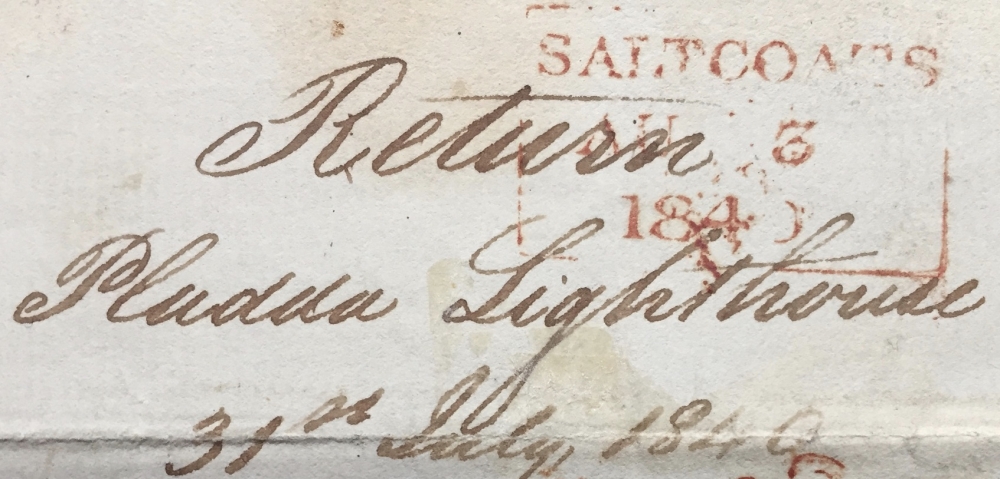 SALTCOATS
Return
AU 3
1840
Pladda Lighthouse
31st July, 1840